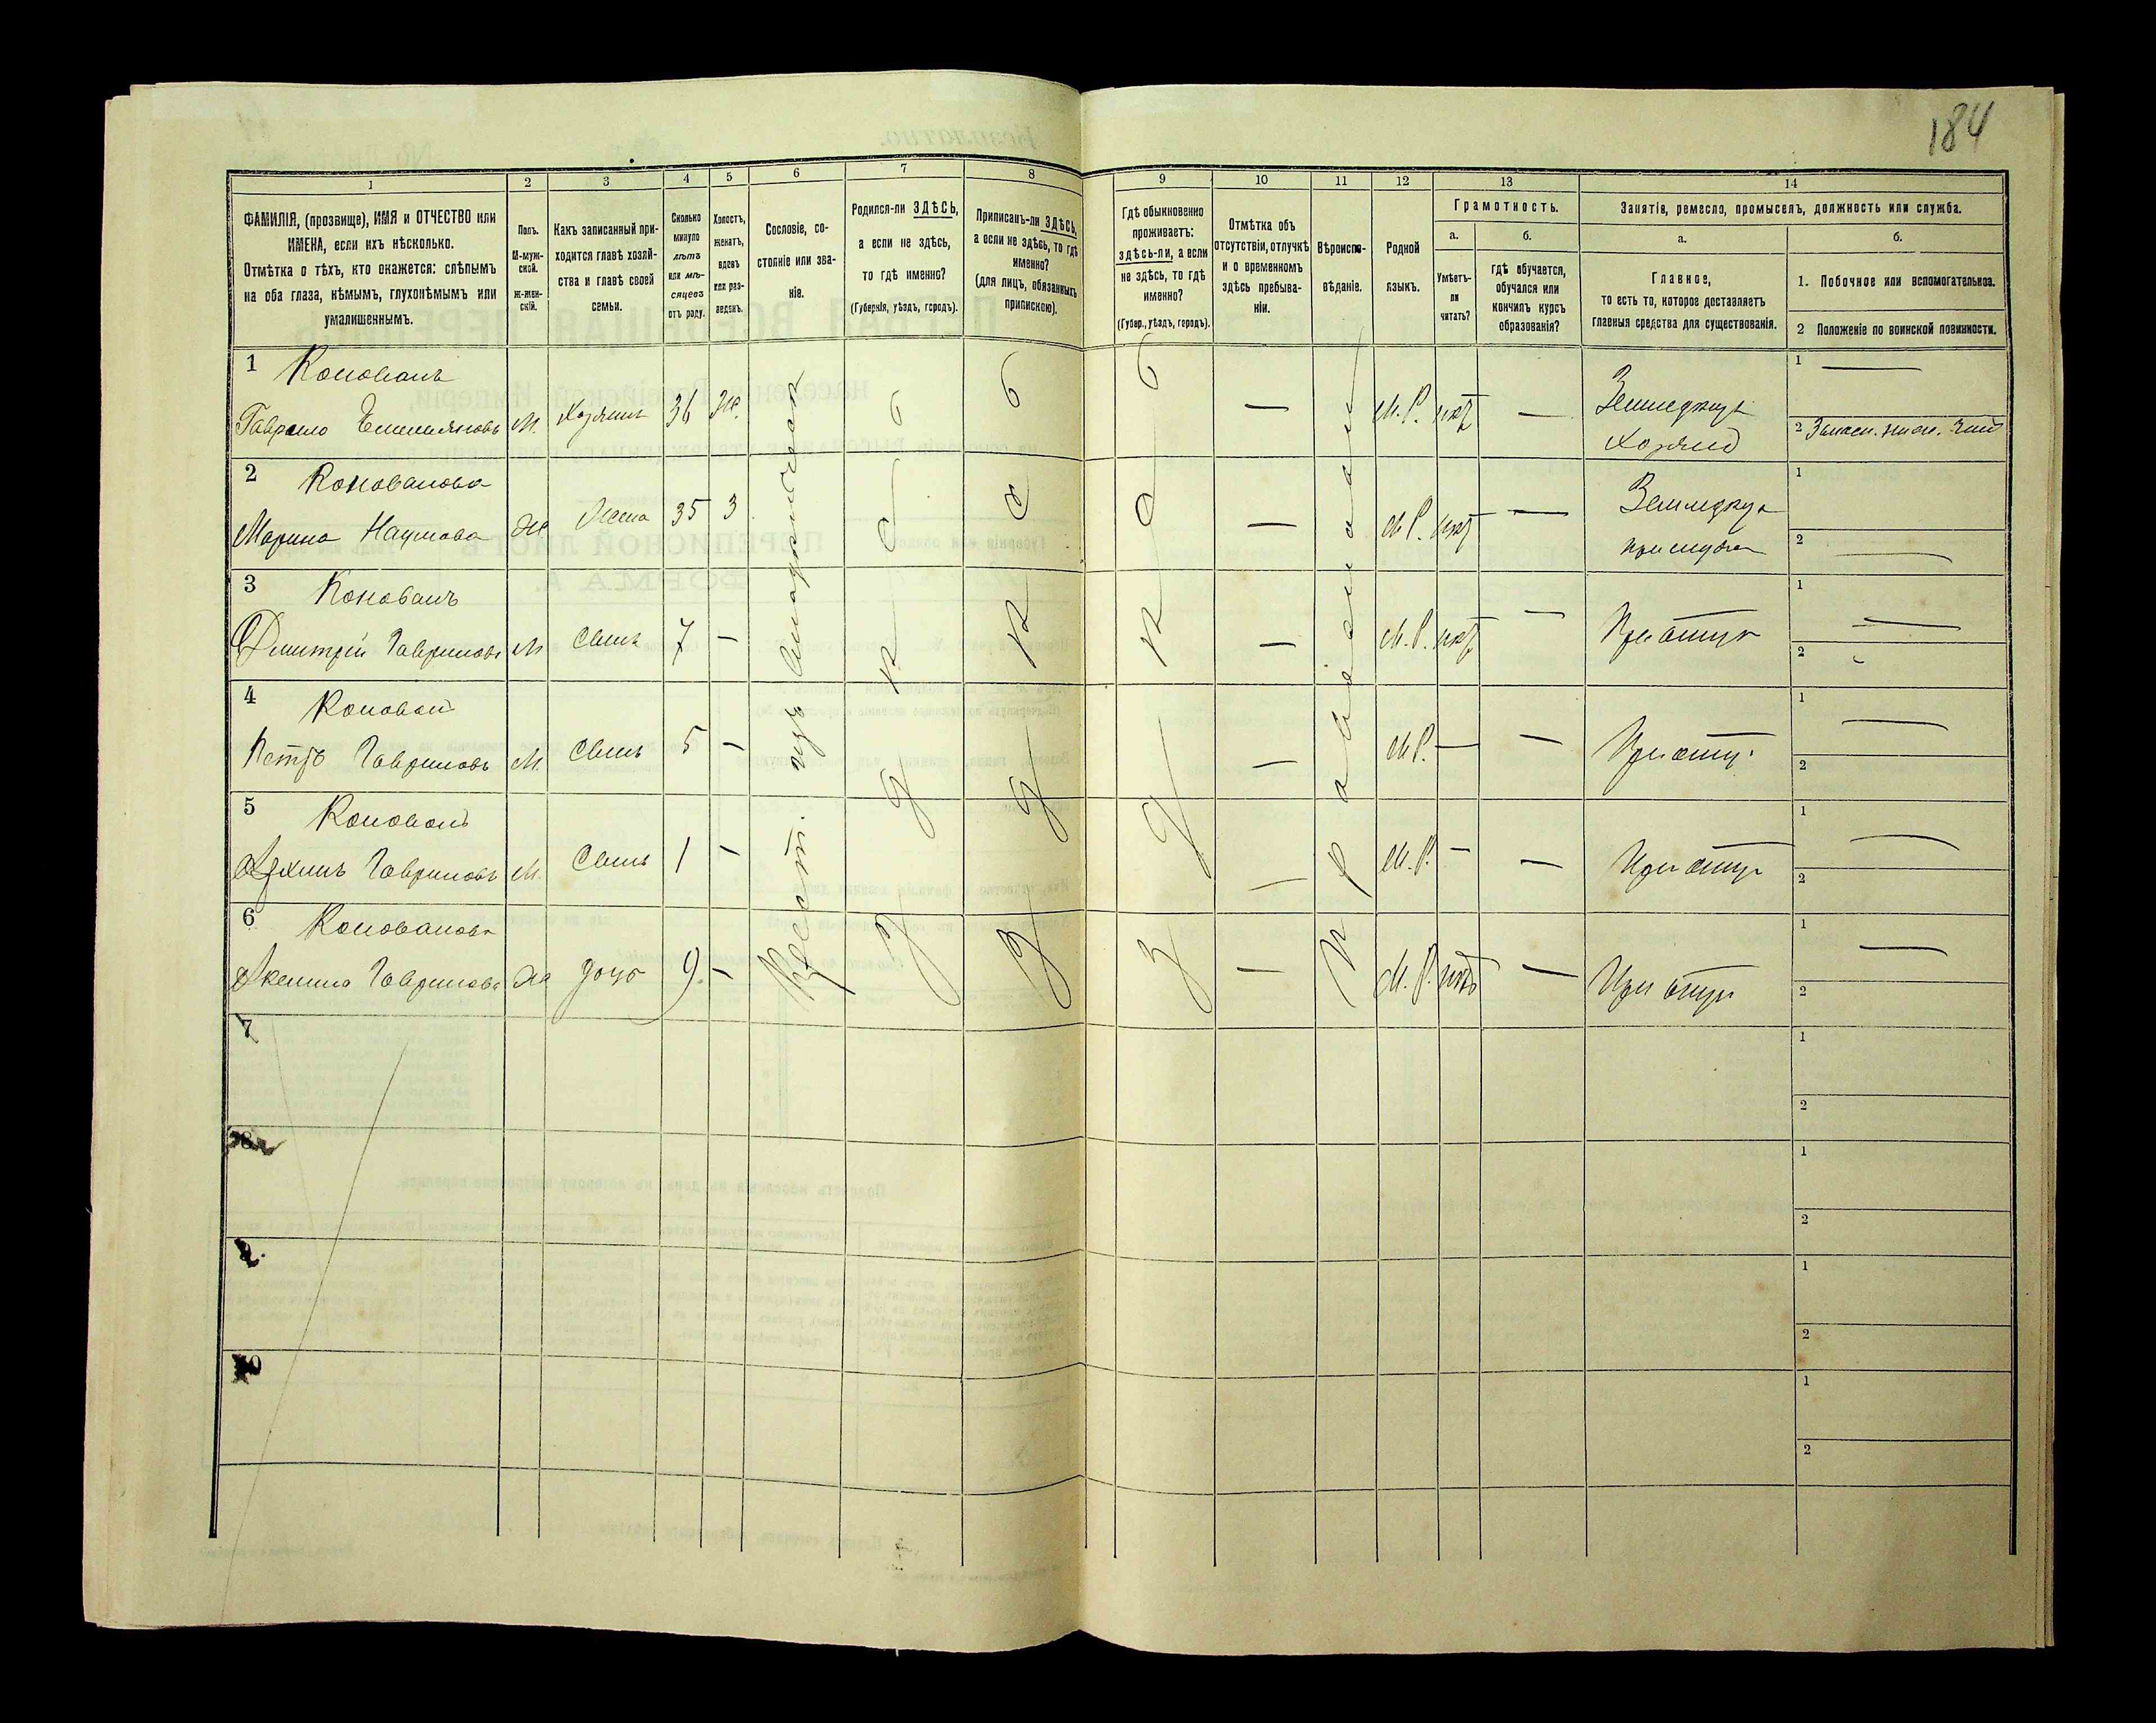 184
1
2
3
4
5
6
7
8
9
10
11
12
13
14
ФАМИЛІЯ, (прозвище), ИМЯ и ОТЧЕСТВО или
ИМЕНА, если ихъ нѣсколько.
Отмѣтка о тѣхъ, кто окажется: слѣпымъ
на оба глаза, нѣмымъ, глухонѣмымъ или
умалишеннымъ.
Полъ.
М-муж-
ской.
Ж-жен-
скій.
Какъ записанный при-
ходится главѣ хозяй-
ства и главѣ своей
семьи.
Сколько
минуло
лѣтъ
или мѣ-
сяцевъ
отъ роду.
Холостъ,
женатъ,
вдовъ
или раз-
веденъ.
Сословіе, со-
стояніе или зва-
ніе.
Родился-ли ЗДѢСЬ,
а если не здѣсь,
то гдѣ именно?
(Губернія, уѣздъ, городъ).
Приписанъ-ли ЗДѢСЬ,
а если не здѣсь, то гдѣ
именно?
(для лицъ, обязанныхъ
припискою).
Гдѣ обыкновенно
проживаетъ:
здѣсь-ли, а если
не здѣсь, то гдѣ
именно?
(Губер., уѣздъ, городъ).
Отмѣтка объ
отсутствіи, отлучкѣ
и о временномъ
здѣсь пребыва-
ніи.
Вѣроиспо-
вѣданіе.
Родной
языкъ.
Грамотность.
а.
Умѣетъ-
ли
читать?
б.
гдѣ обучается,
обучался или
кончилъ курсъ
образованія?
Занятія, ремесло, промыселъ, должность или служба.
а.
Главное,
то есть то, которое доставляетъ
главныя средства для существованія.
б.
1. Побочное или вспомогательное.
2 Положеніе по воинской повинности.
1 Коновалъ
Гаврило Емельяновъ М. Хозяинъ 36 Ж. М.Р. нѣтъ Земледѣлецъ
Хозяинъ
1
2
2 Коновалова
Марина Наумова Ж. Жена 35 З М.Р. нѣтъ
1
2
3 Коновалъ
Дмитрій Гавриловъ М Сынъ 7 — М.Р. нѣтъ При отцѣ
1
2
4 Коновалъ
Петръ Гавриловъ М. Сынъ 5 — М.Р. — При отцѣ
1
2
5 Коновалъ
Гавриловъ М. Сынъ 1 — М.Р. — При отцѣ
1
2
6 Коновалова
Гаврилова Ж дочь 9. — М.Р. нѣтъ При отцѣ
1
2
Крест. изъ
Здѣсь
Здѣсь
Здѣсь
7
1
2
8
1
2
9
1
2
10
1
2